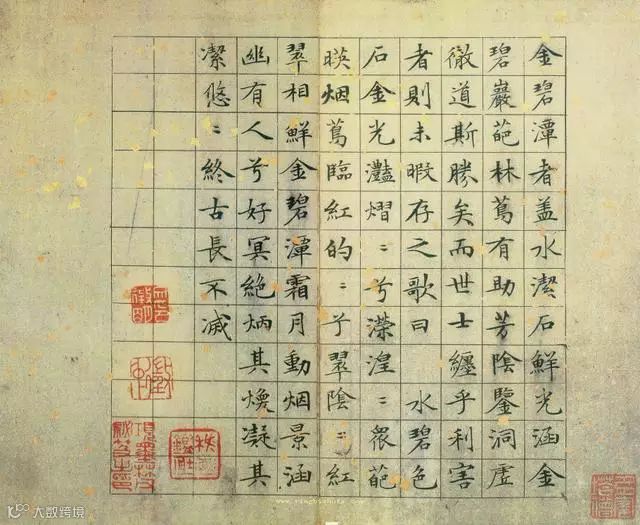 金碧潭者盖水潔石鮮光涵金
碧巖葩林蔦有助芳陰鑒洞虛
徹道斯勝矣而世士纏乎利害
者則未暇存之歌曰 水碧色
石金光灩熠〻兮濴湟〻泉葩
暎烟蔦臨紅的〻兮翠陰〻紅
翠相鮮金碧潭霜月動烟景涵
幽有人兮好冥絕炳其煥凝其
潔悠〻終古長不滅
大数跨境